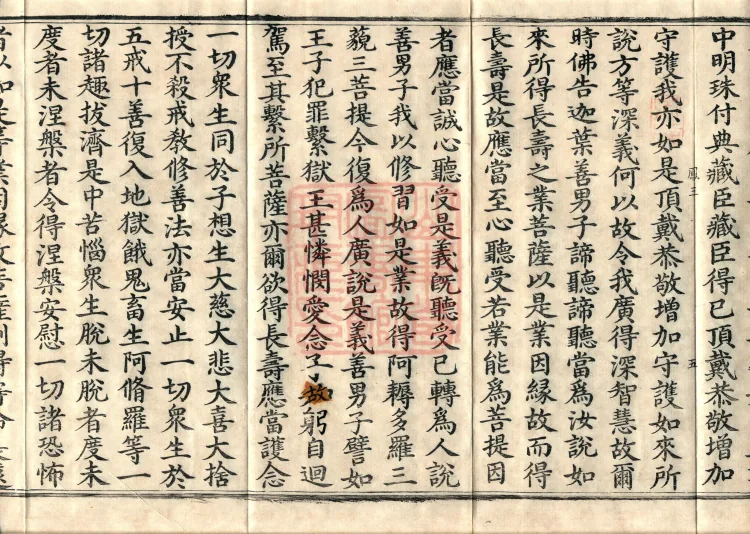 中明珠付典藏臣藏臣得已頂戴恭敬增加
守護我亦如是頂戴恭敬增加守護如來所
鳳三 五
說方等深義何以故令我廣得深智慧故爾
時佛告迦葉善男子諦聽諦聽當爲汝說如
來所得長壽之業菩薩以是業因緣故而得
長壽是故應當至心聽受若業能爲菩提因
者應當誠心聽受是義旣聽受已轉爲人說
善男子我以修習如是業故得阿耨多羅三
藐三菩提今復爲人廣說是義善男子譬如
王子犯罪繫獄王甚憐憫愛念子故躬自迴
駕至其繫所菩薩亦爾欲得長壽應當護念
一切衆生同於子想生大慈大悲大喜大捨
授不殺戒教修善法亦當安止一切衆生於
五戒十善復入地獄餓鬼畜生阿脩羅等一
切諸趣拔濟是中苦惱衆生脫未脫者度未
度者未涅槃者令得涅槃安慰一切諸恐怖